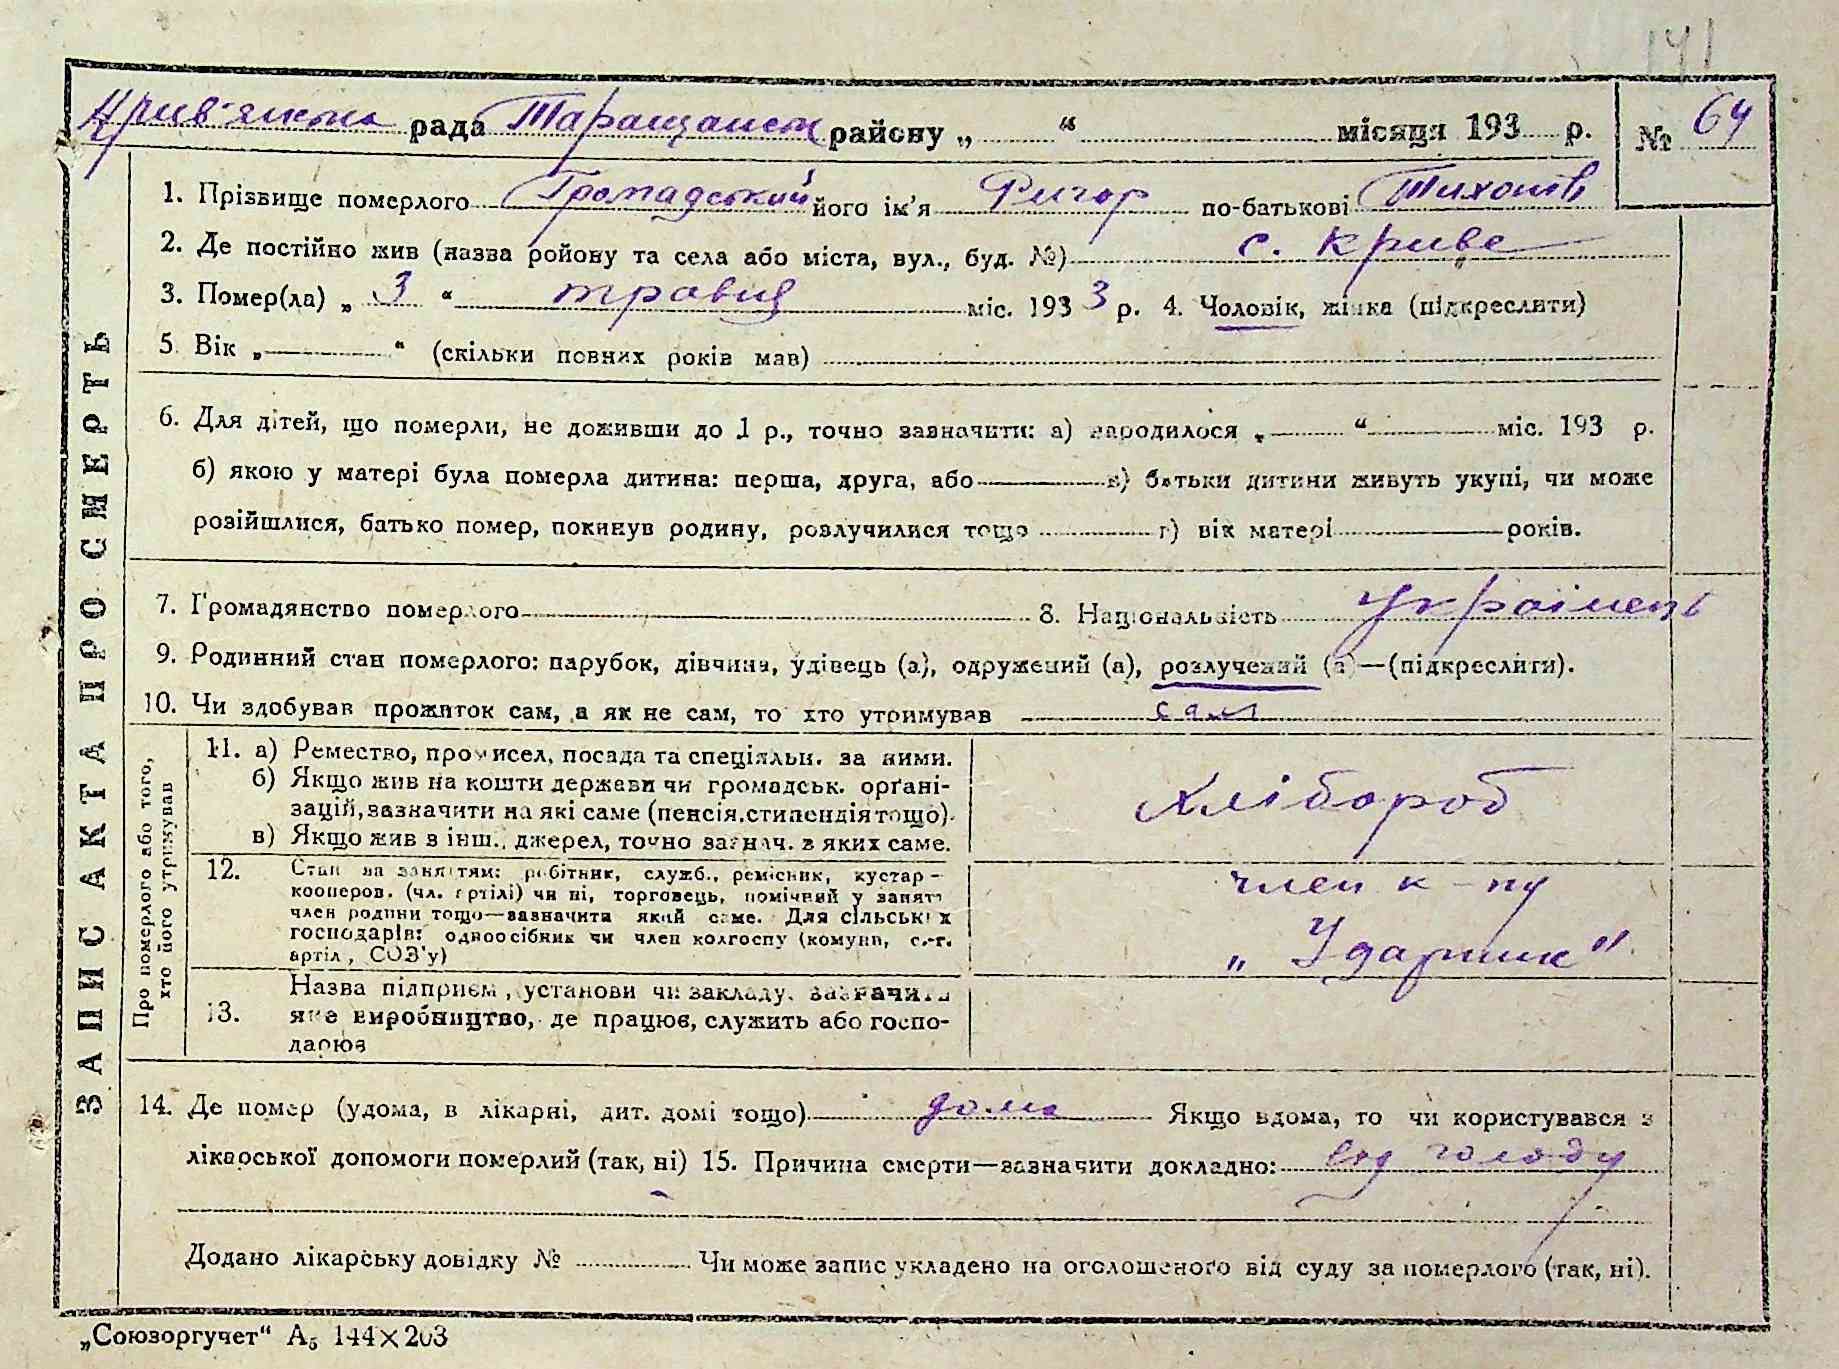 141
Крив'янська рада Таращанськ району „ “ місяця 193 р. № 64
ЗАПИС АКТА ПРО СМЕРТЬ
1. Прізвище померлого Громадський його ім'я Ригор по-батькові Тихонів
2. Де постійно жив (назва ройону та села або міста, вул., буд. №) с. Криве
3. Помер(ла) „ 3 “ травця міс. 193 3 р. 4. Чоловік, жінка (підкреслити)
5. Вік „ “ (скільки повних років мав)
6. Для дітей, що померли, не доживши до 1 р., точно зазначити: а) народилося „ “ міс. 193 р.
б) якою у матері була померла дитина: перша, друга, або в) батьки дитини живуть укупі, чи може
розійшлися, батько помер, покинув родину, розлучилися тощо г) вік матері років.
7. Громадянство померлого 8. Національність Українець
9. Родинний стан померлого: парубок, дівчина, удівець (а), одружений (а), розлучений (а)—(підкреслити).
10. Чи здобував прожиток сам, а як не сам, то хто утримував сам
Про померлого або того,
хто його утримував
11. а) Ремество, промисел, посада та спеціяльн. за ними.
б) Якщо жив на кошти держави чи громадськ. орґані-
зацій, зазначити на які саме (пенсія, стипендія тощо).
в) Якщо жив з інш., джерел, точно зазнач. з яких саме.
Хлібороб
12. Стан за заняттям: робітник, служб., ремісник, кустар-
кооперов. (чл. артілі) чи ні, торговець, помічний у занятт
член родини тощо—зазначити який саме. Для сільських
господарів: одноосібник чи член колгоспу (комуни, с.-г.
артіл, СОЗ'у)
член к-пу
„Ударник“
13. Назва підприєм, установи чи закладу, зазначить
яке виробництво, де працює, служить або госпо-
дарює
14. Де помер (удома, в лікарні, дит. домі тощо) дома Якщо вдома, то чи користувався з
лікарської допомоги померлий (так, ні) 15. Причина смерти—зазначити докладно: від голоду
Додано лікарську довідку № Чи може запис укладено на оголошеного від суду за померлого (так, ні).
„Союзоргучет“ А5 144×203